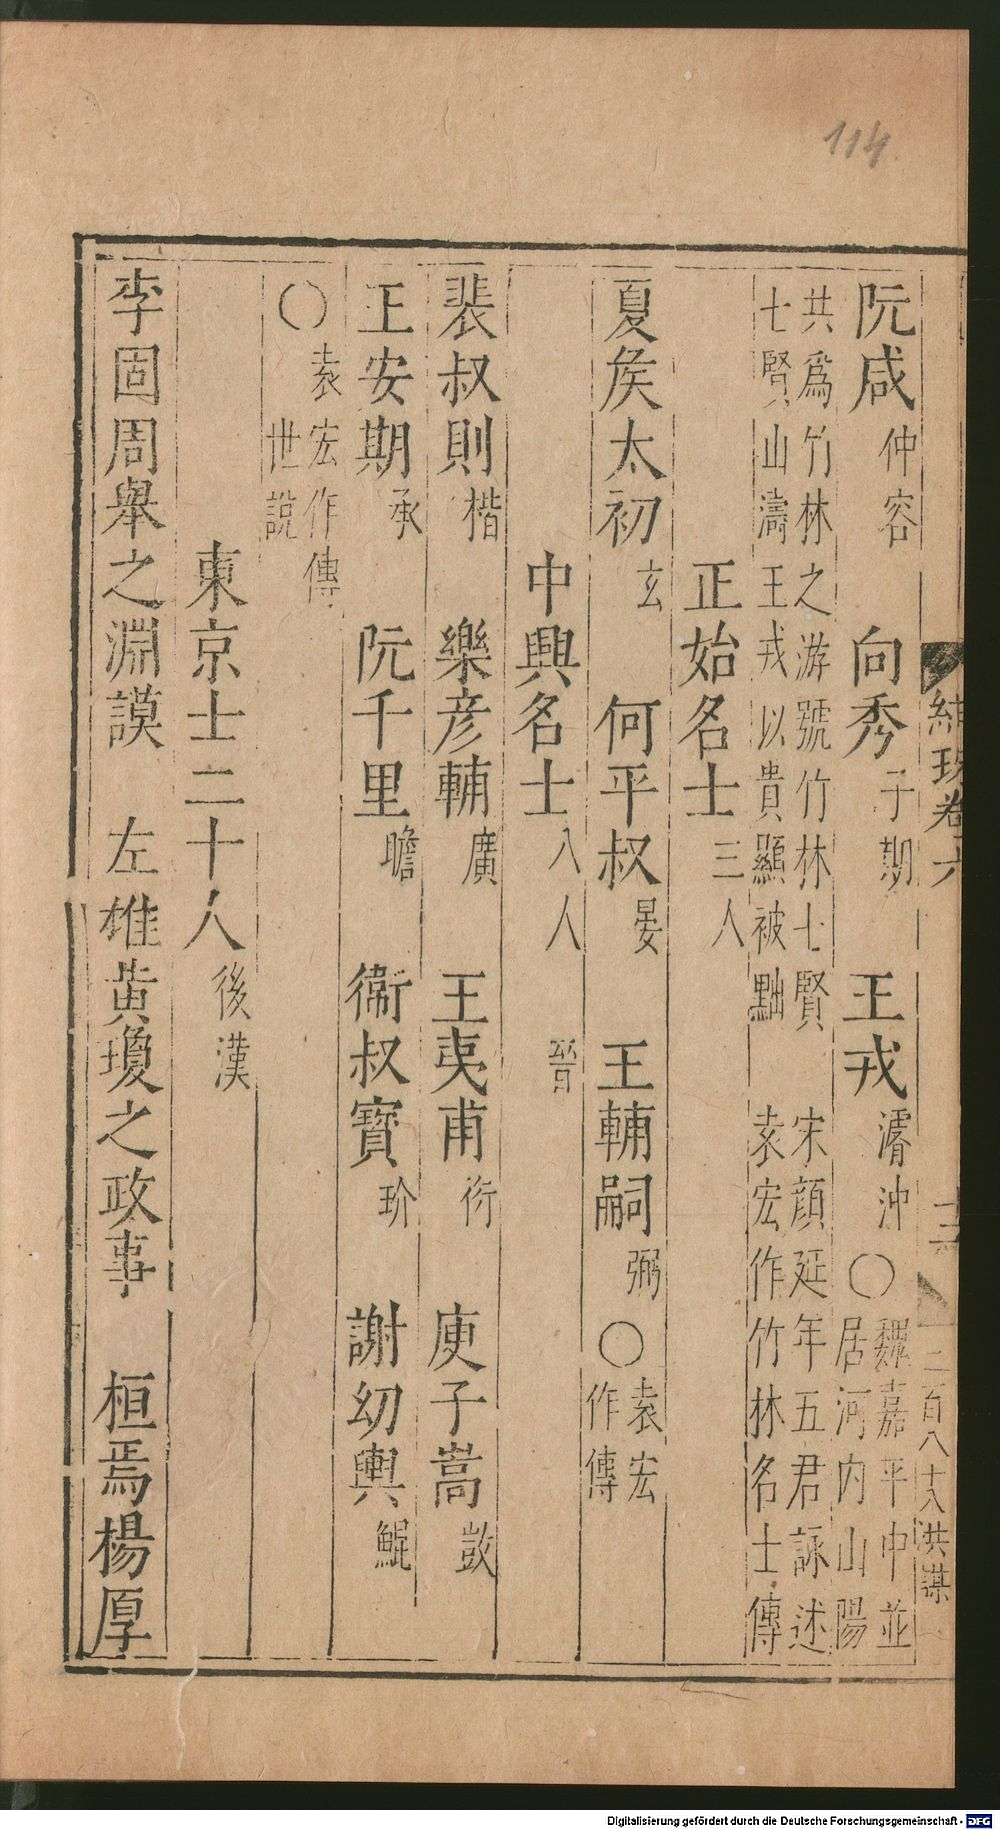 114
紺珠卷六
十二
二百八十八洪謀
阮咸仲容 向秀子期 王戎濬沖〇魏嘉平中並
居河内山陽
共爲竹林之游號竹林七賢 宋顔延年五君詠述
七賢山濤王戎以貴顯被黜 袁宏作竹林名士傳
正始名士三人
夏侯太初玄 何平叔晏 王輔嗣弼〇袁宏
作傳
中興名士八人 晉
裴叔則楷 樂彦輔廣 王夷甫衍 庾子嵩敳
王安期承 阮千里瞻 衞叔寶玠 謝幼輿鯤
〇袁宏作傳
世說
東京士二十人後漢
李固周舉之淵謨 左雄黄瓊之政事 桓焉楊厚
Digitalisierung gefördert durch die Deutsche Forschungsgemeinschaft - DFG